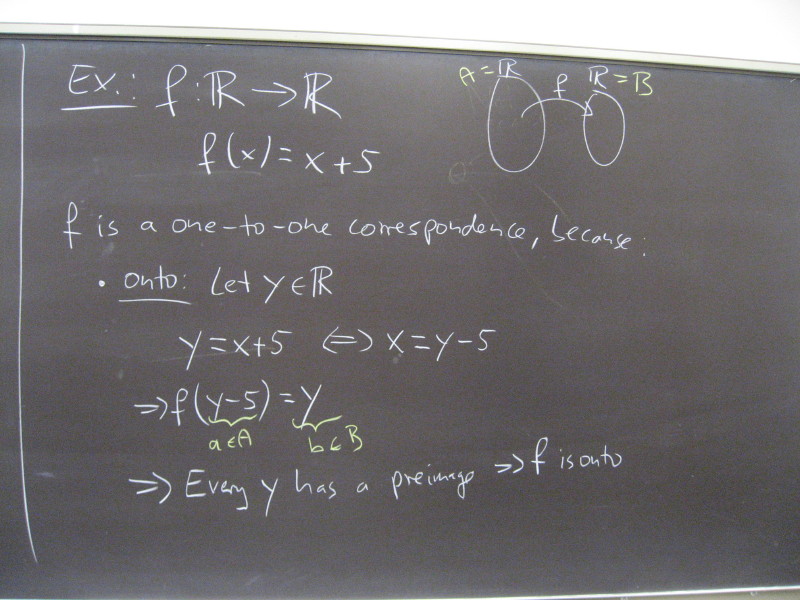 Ex.: f: ℝ → ℝ
A = ℝ f ℝ = B
f(x) = x + 5
f is a one-to-one correspondence, because:
• onto: Let y ∈ ℝ
y = x+5 ⇔ x = y-5
⇒ f(y-5) = y
a ∈ A b ∈ B
⇒ Every y has a preimage ⇒ f is onto